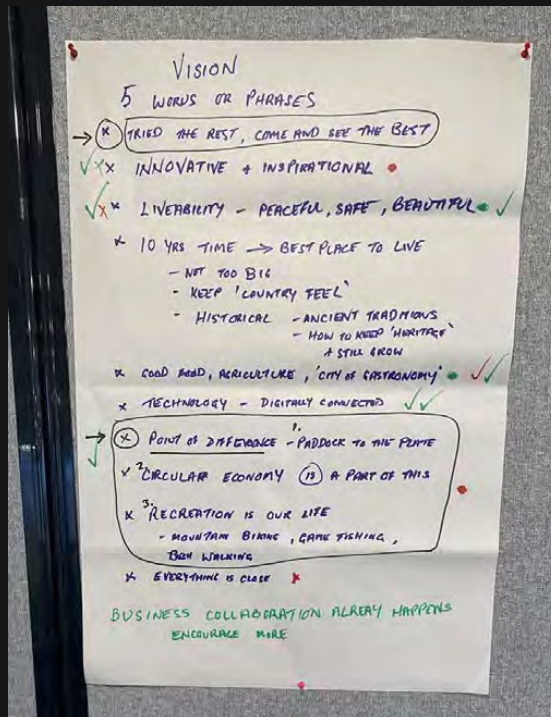 VISION
5 WORDS OR PHRASES
→ x TRIED THE REST, COME AND SEE THE BEST
x INNOVATIVE + INSPIRATIONAL
x LIVEABILITY - PEACEFUL, SAFE, BEAUTIFUL
x 10 YRS TIME → BEST PLACE TO LIVE
- NOT TOO BIG
- KEEP 'COUNTRY FEEL'
- HISTORICAL - ANCIENT TRADITIONS
- HOW TO KEEP 'HERITAGE'
+ STILL GROW
x GOOD FOOD, AGRICULTURE, 'CITY OF GASTRONOMY'
x TECHNOLOGY - DIGITALLY CONNECTED
→ x POINT OF DIFFERENCE 1. - PADDOCK TO THE PLATE
x 2. CIRCULAR ECONOMY IS A PART OF THIS
x 3. RECREATION IS OUR LIFE
- MOUNTAIN BIKING, GAME FISHING,
BUSH WALKING
x EVERYTHING IS CLOSE
BUSINESS COLLABORATION ALREAY HAPPENS
ENCOURAGE MORE